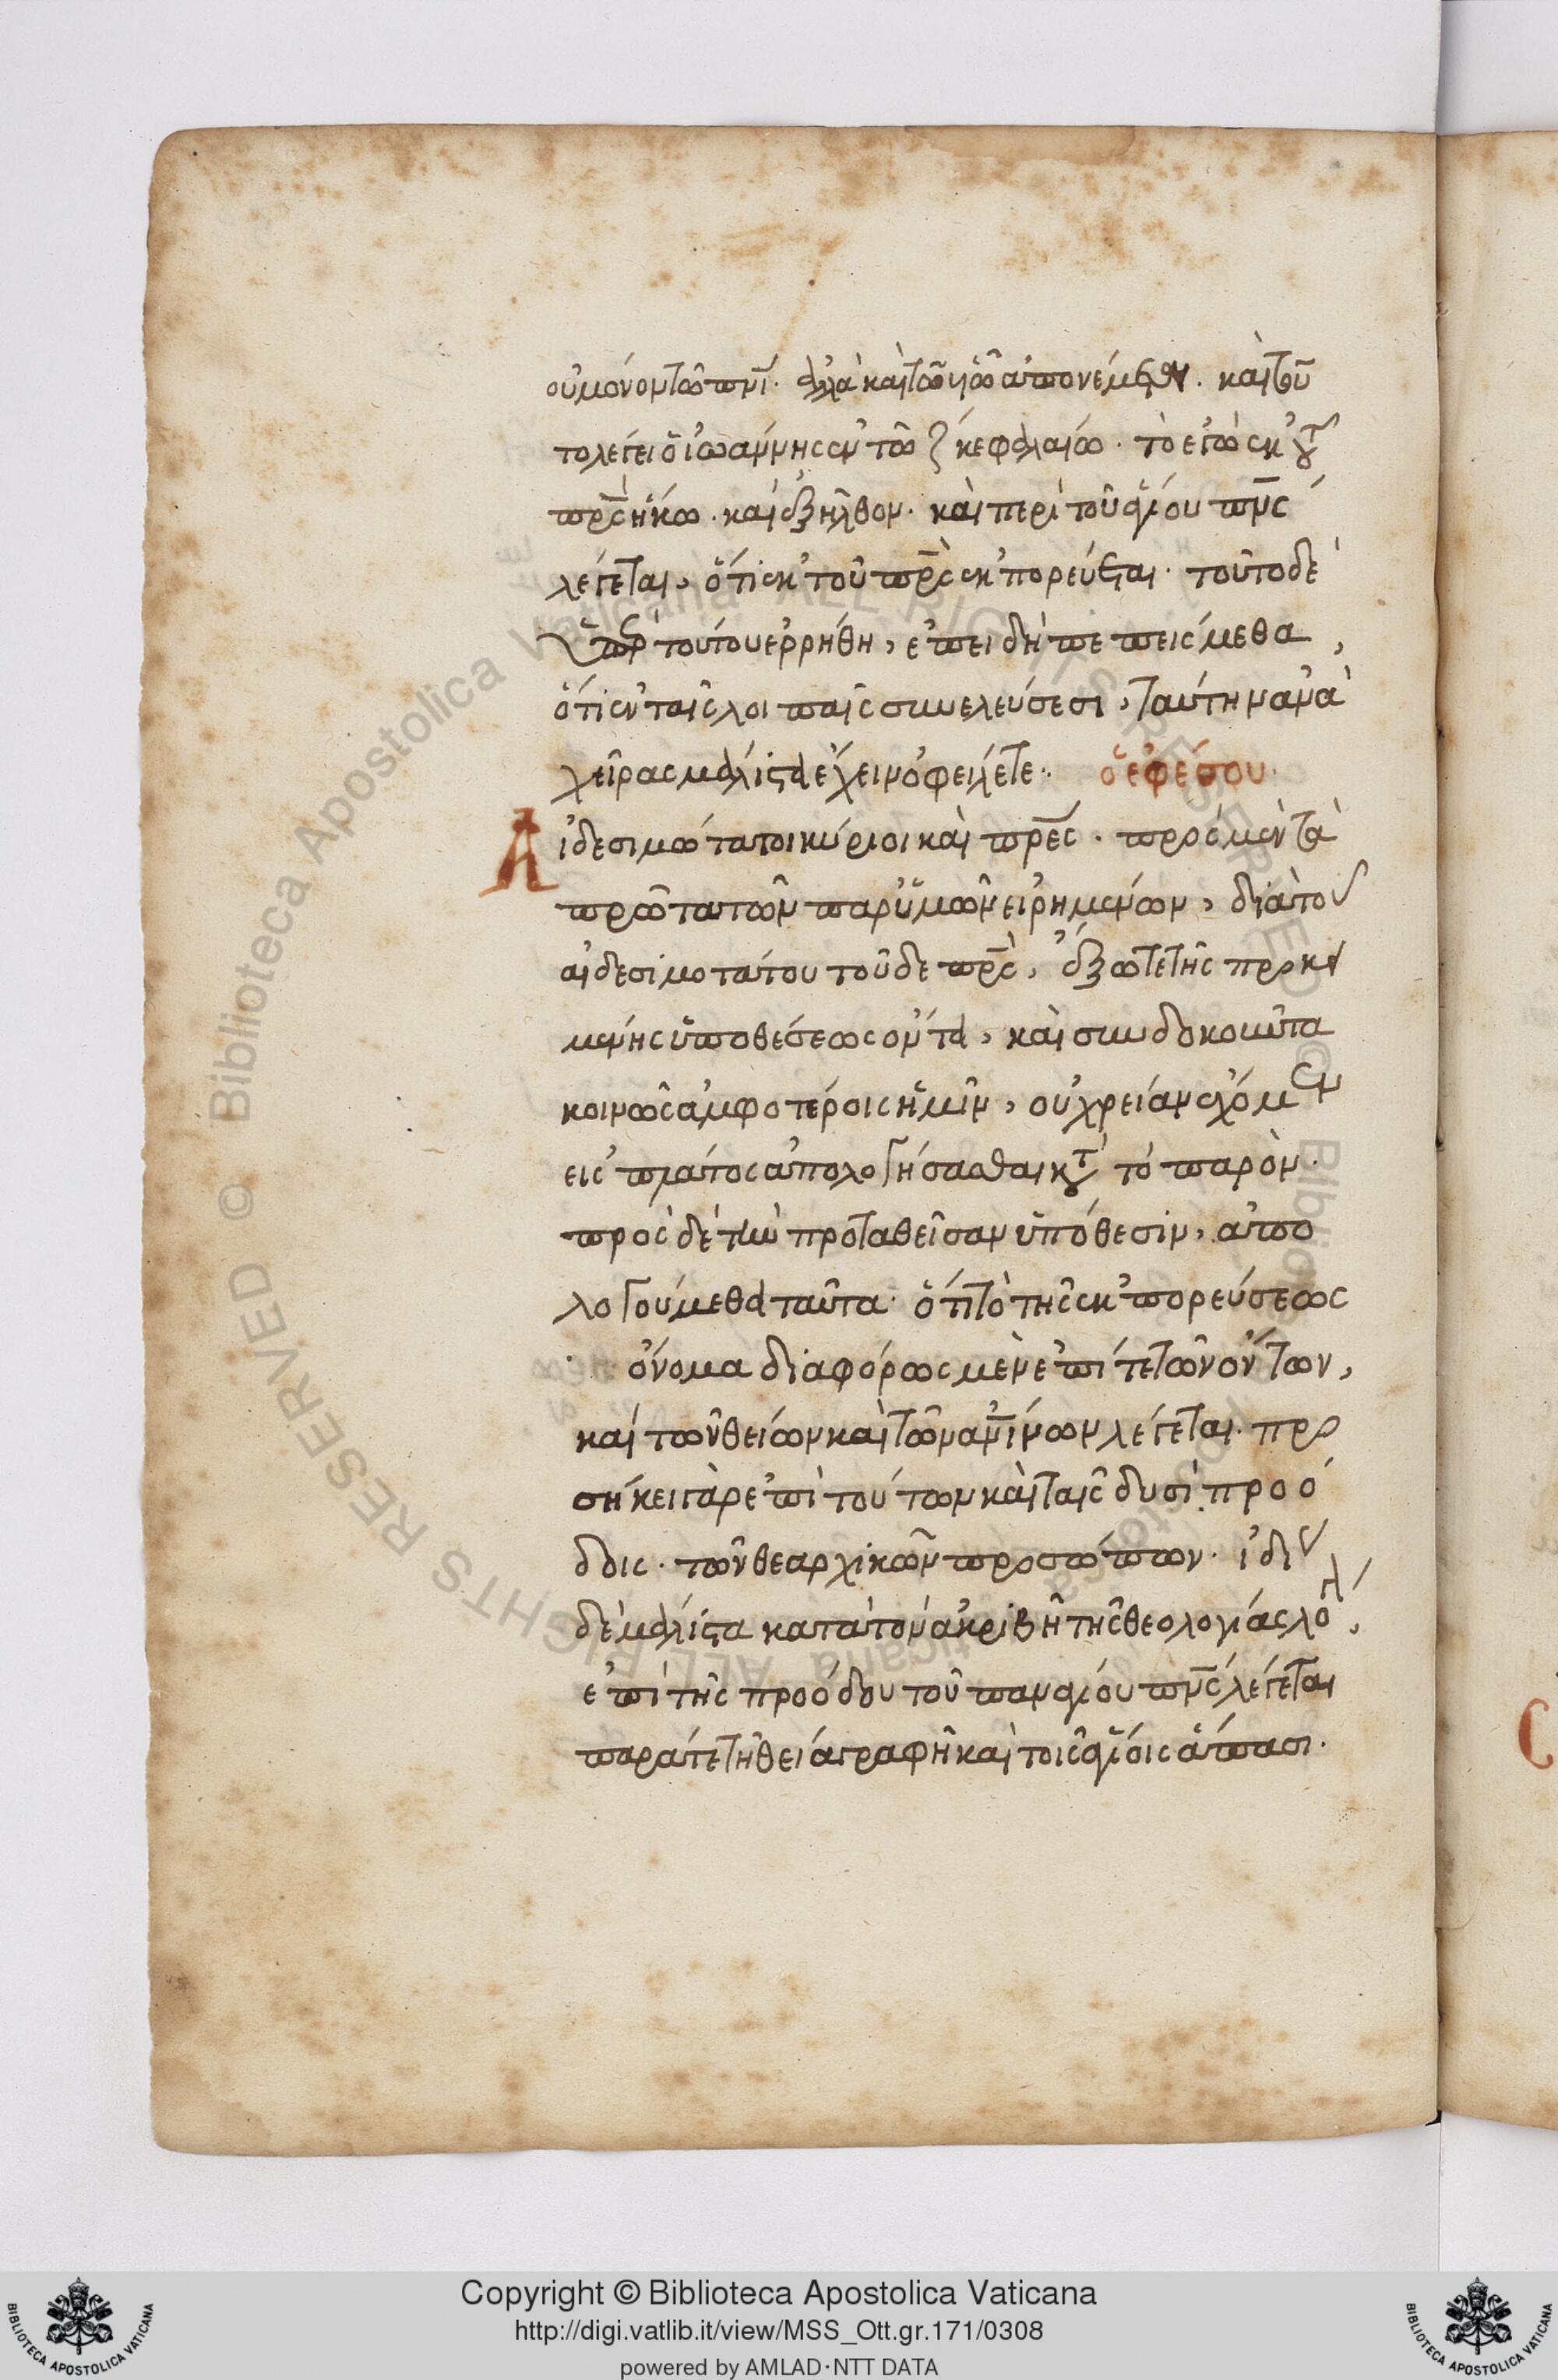 οὐ μόνον τῶ πνι· ἀλλὰ καὶ τῶ υἱῶ ἀπονέμεται. καὶ τοῦ
το λέγει ὁ ἰωάννης ἐν τῶ ζ κεφαλαίω· τὸ ἐγὼ ἐκ τοῦ
πρς ἥκω. καὶ ἐξῆλθον. καὶ περὶ τοῦ ἁγίου πνς
λέγεται, ὅτι ἐκ τοῦ πρς ἐκπορεύεται. τοῦτο δὲ
ὑπὲρ τούτου ἐρρήθη, ἐπειδὴ πεπείσμεθα,
ὅτι ἐν ταῖς λοιπαῖς συνελεύσεσι, ταύτην ἀνὰ
χεῖρας μάλιστα ἔχειν ὀφείλετε. ὁ ἐφέσου.
Αἰδεσιμώτατοι κύριοι καὶ πρες. πρὸς μὲν τὰ
πρῶτα τῶν παρ' ὑμῶν εἰρημένων, διὰ τοῦ
αἰδεσιμοτάτου τοῦδε πρς, ἔξω τε τῆς προκει
μένης ὑποθέσεως ὄντα, καὶ συνδοκοῦντα
κοινῶς ἀμφοτέροις ἡμῖν, οὐ χρείαν ἔχομεν
εἰς πλάτος ἀπολογήσασθαι κατὰ τὸ παρὸν.
πρὸς δὲ τὴν προταθεῖσαν ὑπόθεσιν, ἀπο
λογούμεθα ταῦτα· ὅτι τὸ τῆς ἐκπορεύσεως
ὄνομα διαφόρως μὲν ἐπί τε τῶν ὄντων,
καὶ τῶν θείων καὶ τῶν ἀνίνων λέγεται. προ
σήκει γὰρ ἐπὶ τούτων καὶ ταῖς δυσὶ προό
δοις. τῶν θεαρχικῶν προσώπων. ἰδίως
δὲ μάλιστα κατὰ τὸν ἀκριβῆ τῆς θεολογίας λό,
ἐπὶ τῆς προόδου τοῦ παναγίου πνς λέγεται
παρά τε τῆ θεία γραφῆ καὶ τοῖς ἁγίοις ἅπασι.
Copyright © Biblioteca Apostolica Vaticana
http://digi.vatlib.it/view/MSS_Ott.gr.171/0308
powered by AMLAD·NTT DATA